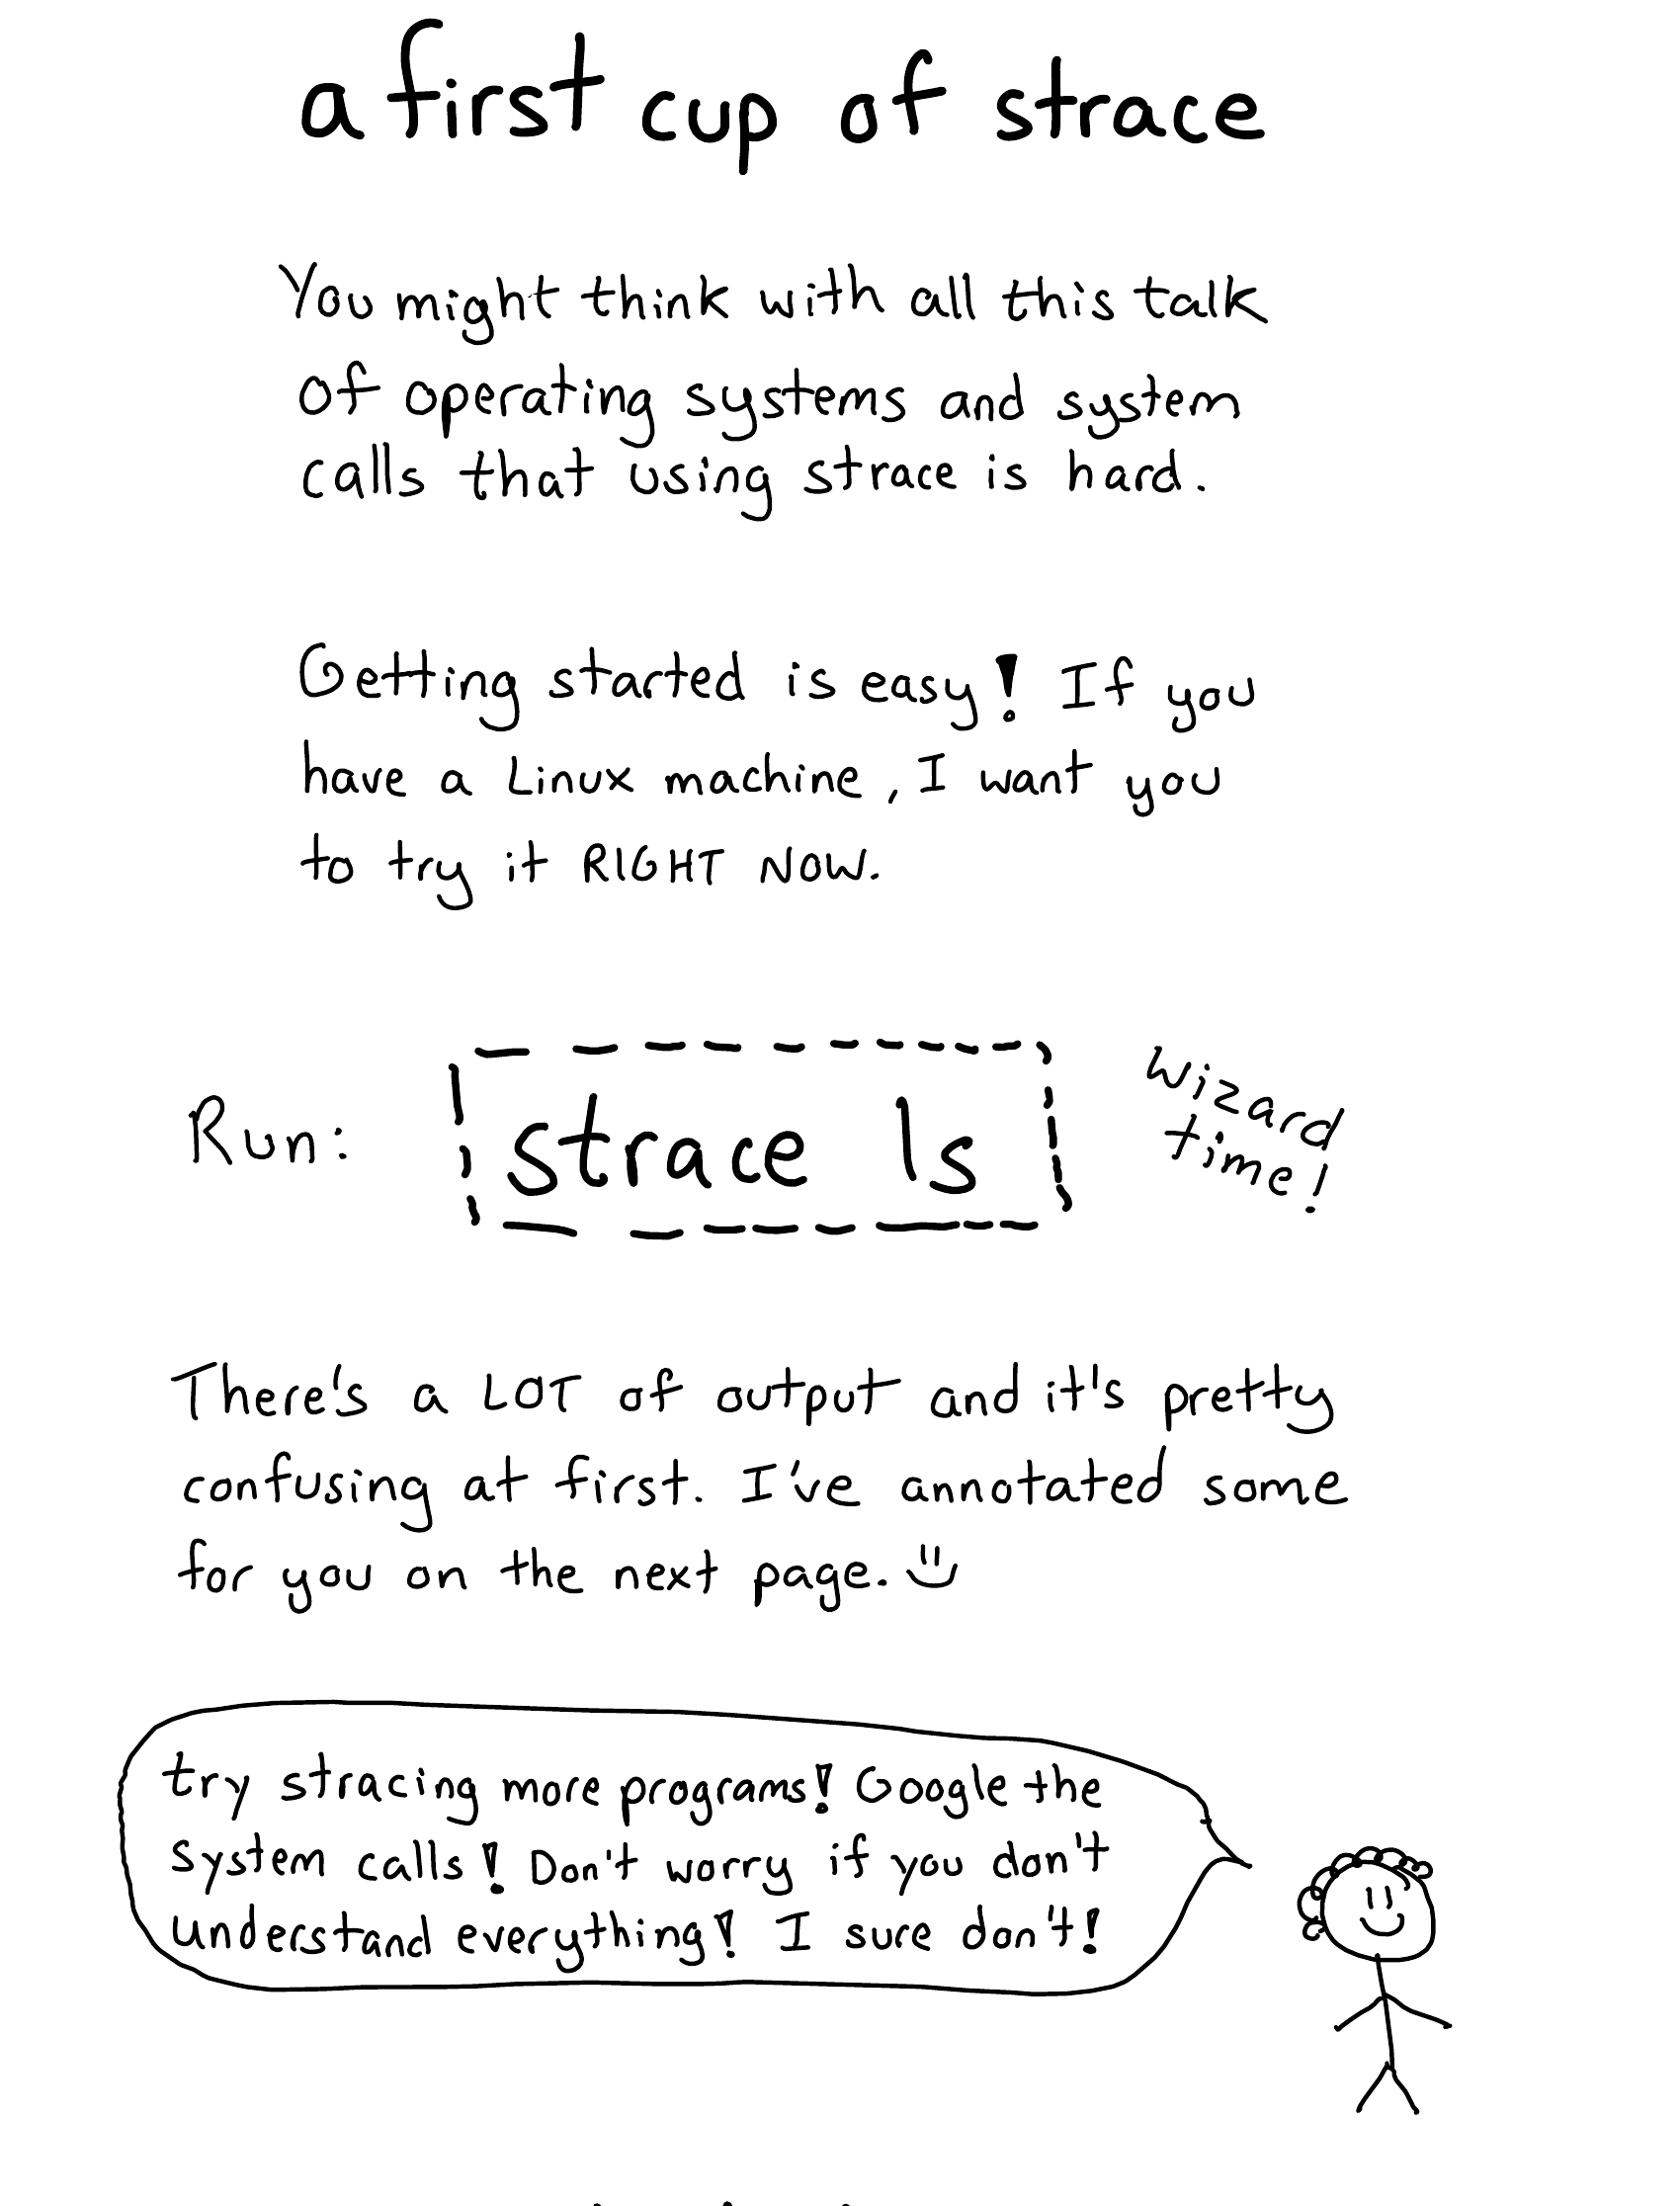 a first cup of strace
You might think with all this talk
of operating systems and system
calls that using strace is hard.
Getting started is easy! If you
have a Linux machine, I want you
to try it RIGHT NOW.
Run: strace ls
wizard
time!
There's a LOT of output and it's pretty
confusing at first. I've annotated some
for you on the next page. :)
try stracing more programs! Google the
system calls! Don't worry if you don't
understand everything! I sure don't!